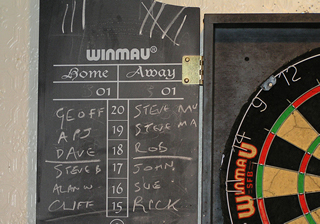 WINMAU®
Home Away
501 501
GEOFF 20 STEVE MU
APJ 19 STEVE MA
DAVE 18 ROB
STEVE B 17 JOHN
ALAN W 16 SUE
CLIFF 15 RICK
12
9
14
WINMAU
SFB